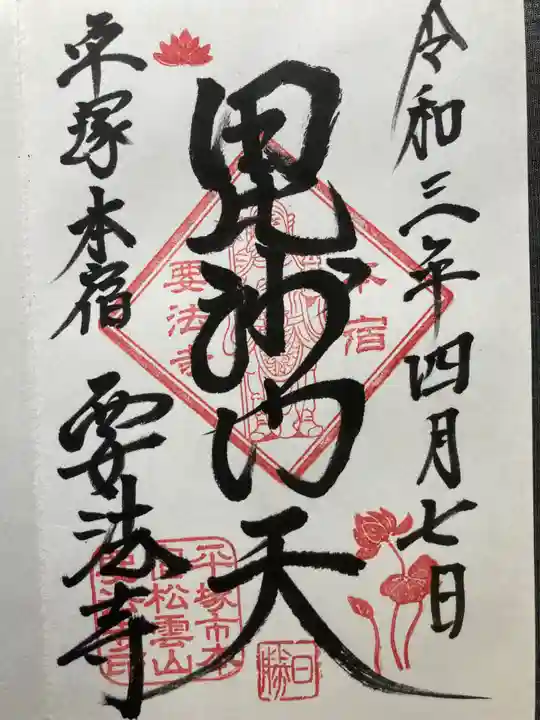 令和三年四月七日
毘沙門天
本宿
要法寺
平塚本宿
要法寺
平塚市本
松雲山
日勝